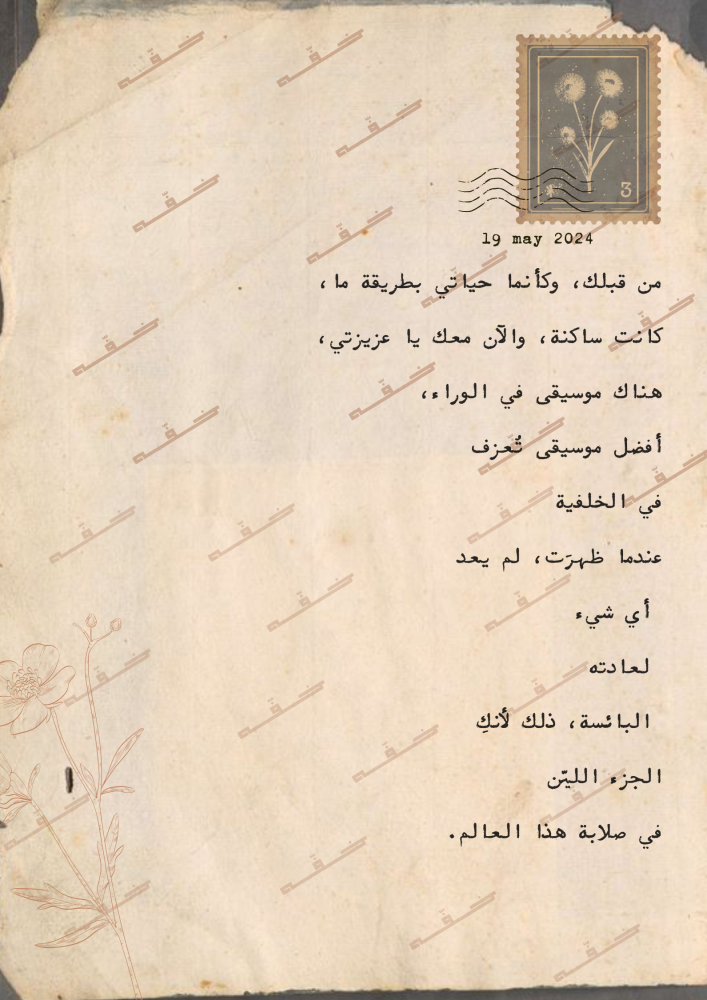 3
19 may 2024
من قبلك، وكأنما حياتي بطريقة ما،
كانت ساكنة، والآن معك يا عزيزتي،
هناك موسيقى في الوراء،
أفضل موسيقى تُعزف
في الخلفية
عندما ظهرَت، لم يعد
أي شيء
لعادته
البائسة، ذلك لأنكِ
الجزء الليّن
في صلابة هذا العالم.